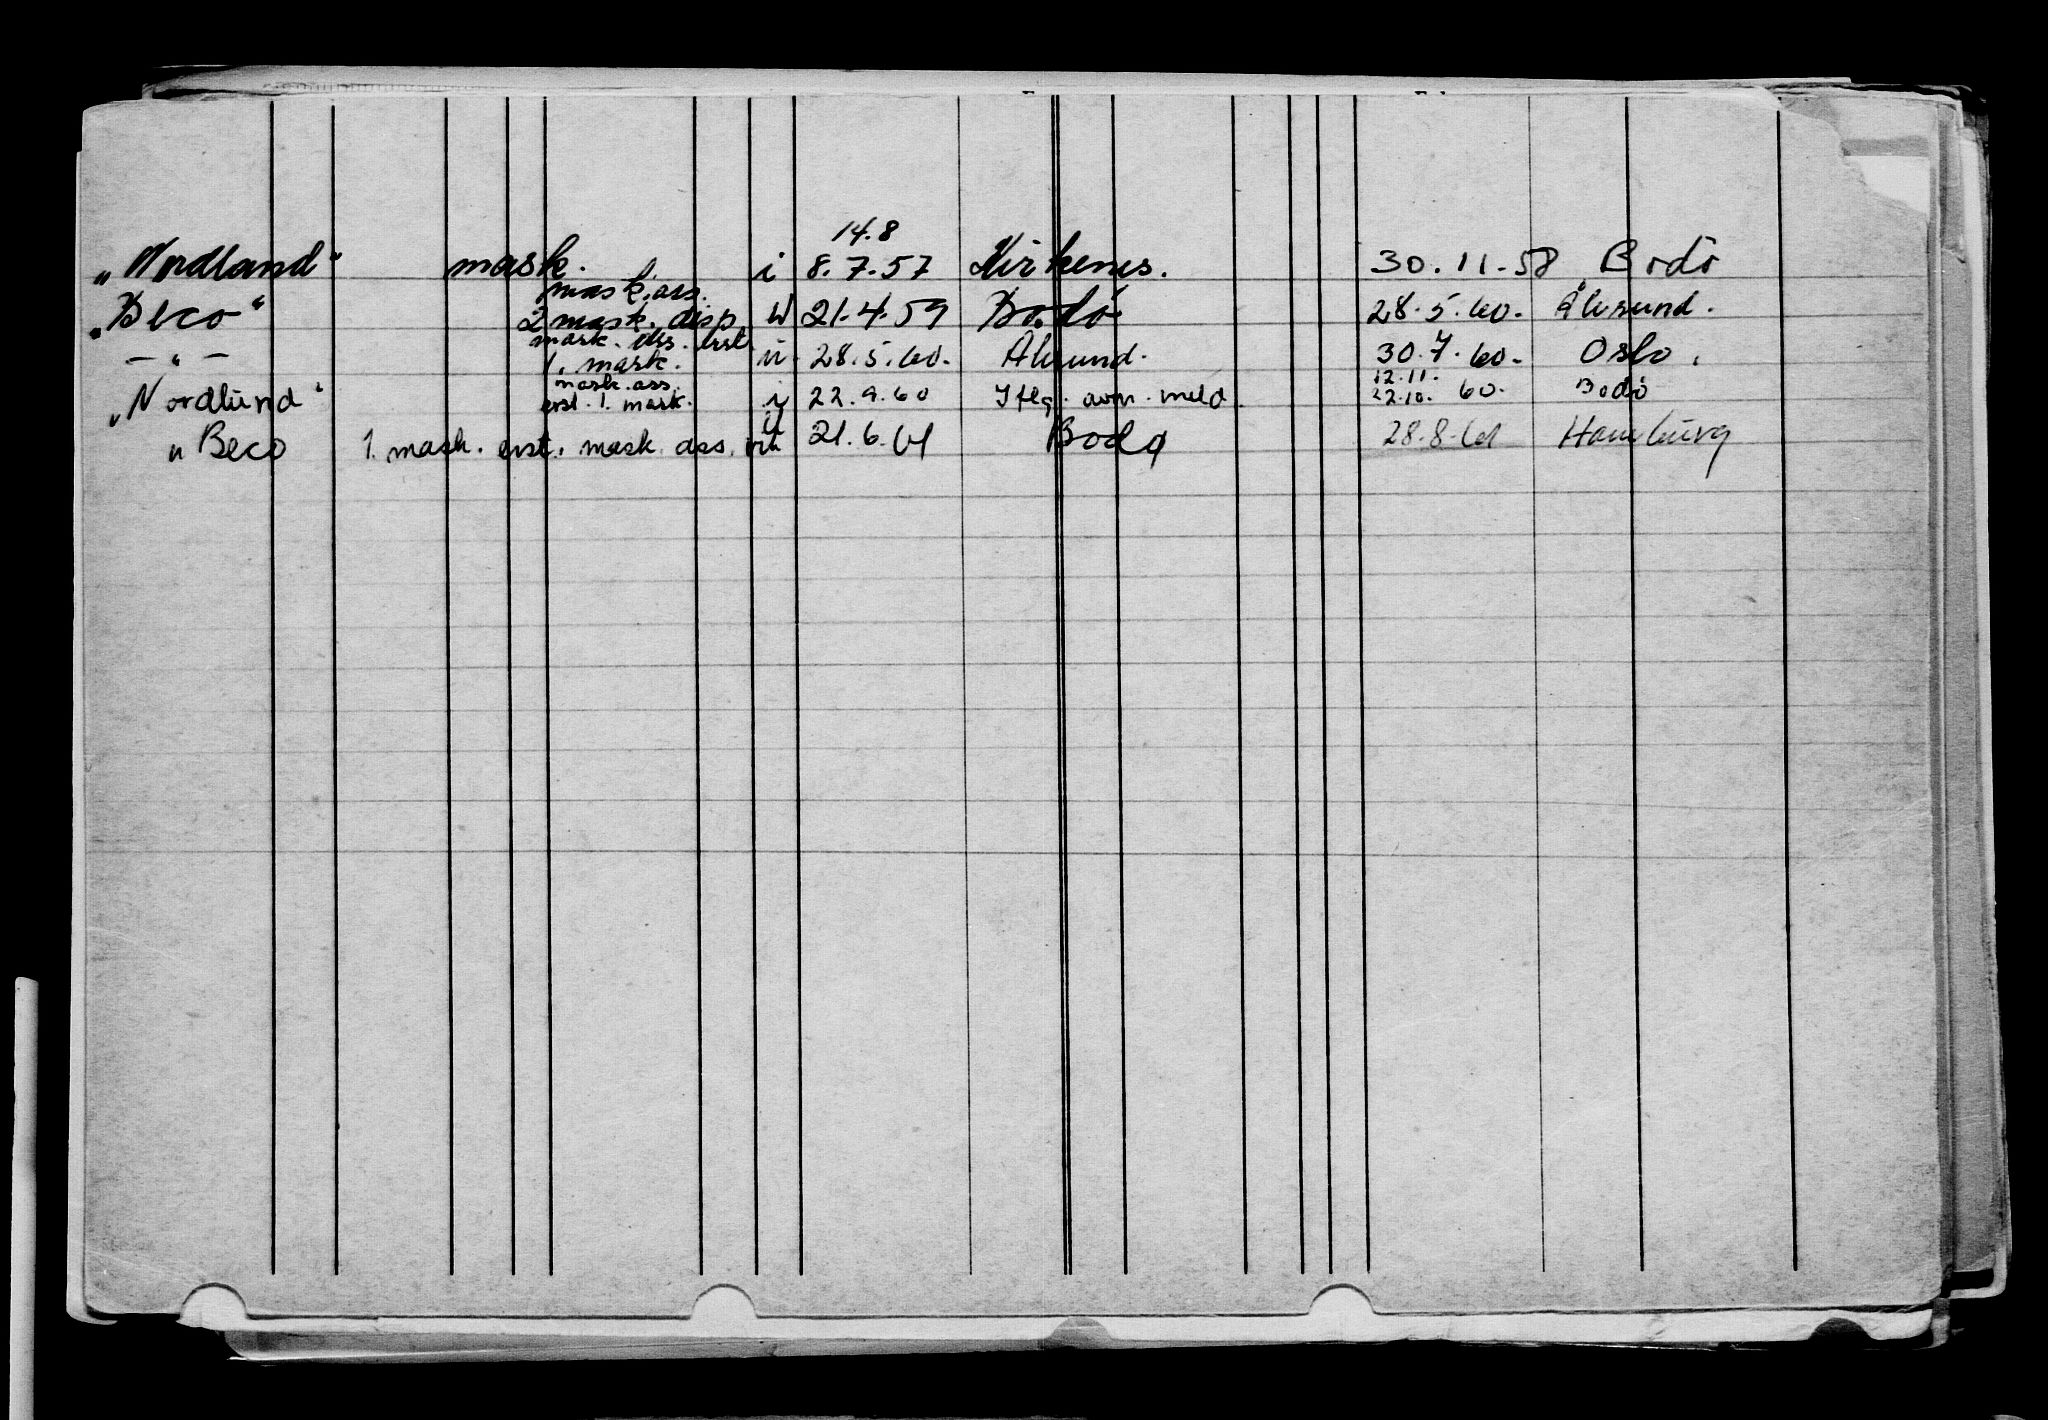 14.8
„Nordland“ mask. i 8.7.57 Kirkenes. 30.11-58 Bodö
mask.ass.
„Beco“ 2 mask. disp 21.4.59 Bodö 28.5.60. Ålesund.
mask. ass. erst.
— " — 1. mask. u 28.5.60. Ålesund. 30.7.60. Oslo.
mask.ass. 12.11.
„Nordlund“ erst. 1. mask. i 22.9.60 Iflg. avm. meld. 22.10. 60. Bodö
„Beco 1. mask. erst. mask. ass. 21.6.61 Bodø 28.8.61 Hamburg